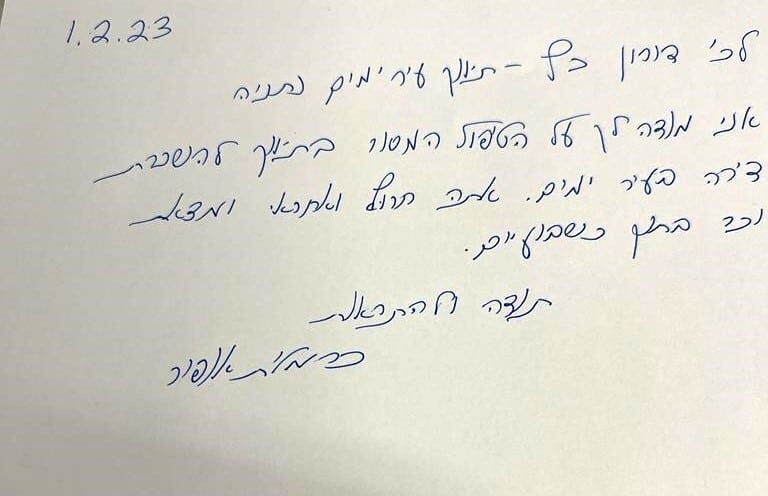 1.2.23
לכ' דורון כץ - תיווך עיר ימים נתניה
אני מודה לך על הטיפול המסור בתיווך להשכרת
דירה בעיר ימים. אתה חרוץ ואחראי ומצאת
בתוך כשבועיים.
תודה ולהתראות
כרמלית